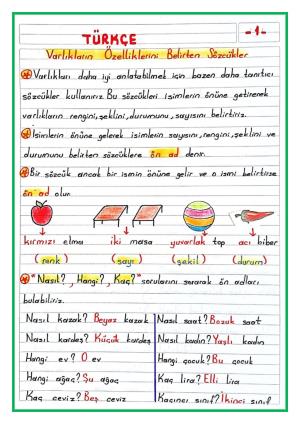 -1-
TÜRKÇE
Varlıkların Özelliklerini Belirten Sözcükler
Varlıkları daha iyi anlatabilmek için bazen daha tanıtıcı
sözcükler kullanırız. Bu sözcükleri isimlerin önüne getirerek
varlıkların rengini, şeklini, durumunu, sayısını belirtiriz.
İsimlerin önüne gelerek isimlerin sayısını, rengini, şeklini ve
durumunu belirten sözcüklere ön ad denir.
Bir sözcük ancak bir ismin önüne gelir ve o ismi belirtirse
ön ad olur.
kırmızı elma iki masa yuvarlak top acı biber
(renk) (sayı) (şekil) (durum)
"Nasıl?, Hangi?, Kaç?" sorularını sorarak ön adları
bulabiliriz.
Nasıl kazak? Beyaz kazak Nasıl saat? Bozuk saat
Nasıl kardeş? Küçük kardeş Nasıl kadın? Yaşlı kadın
Hangi ev? O ev Hangi çocuk? Bu çocuk
Hangi ağaç? Şu ağaç Kaç lira? Elli lira
Kaç ceviz? Beş ceviz Kaçıncı sınıf? İkinci sınıf